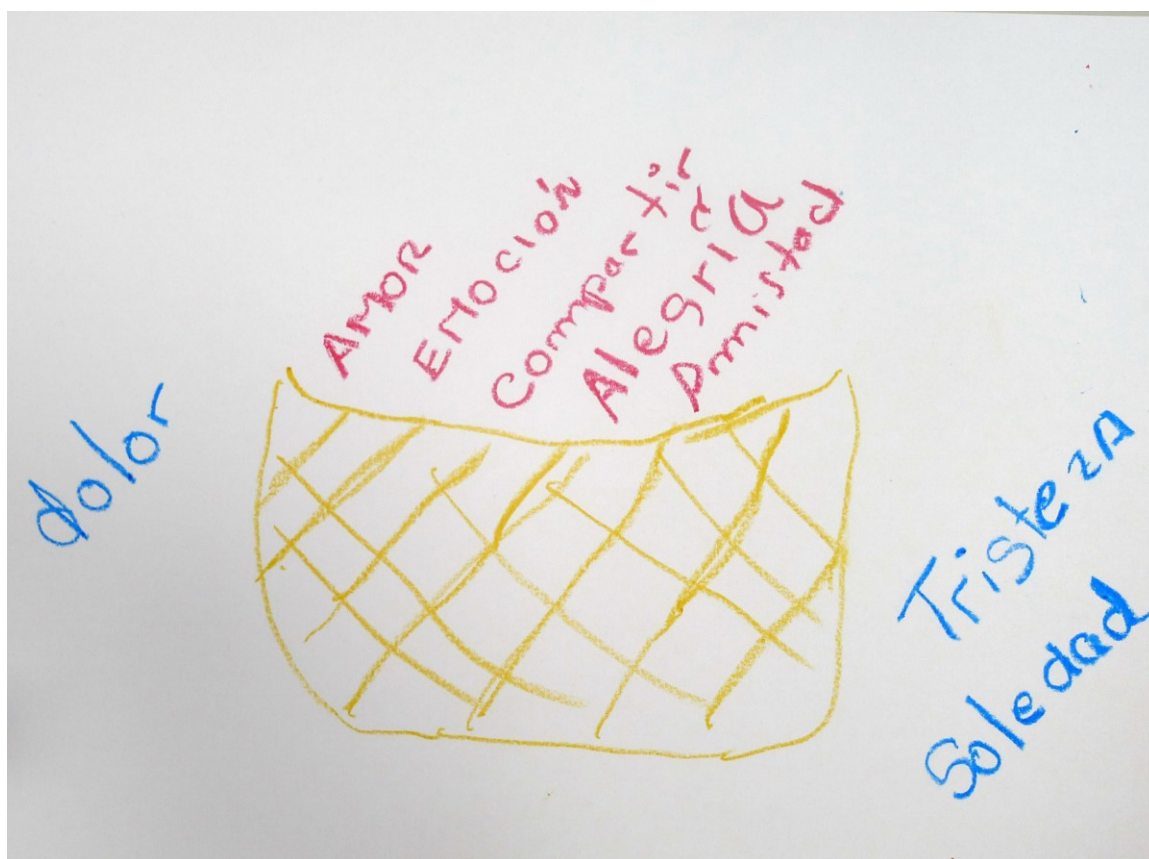 AMOR
EMOCIÓN
Compartir
Alegría
Amistad
dolor
TristezA
Soledad